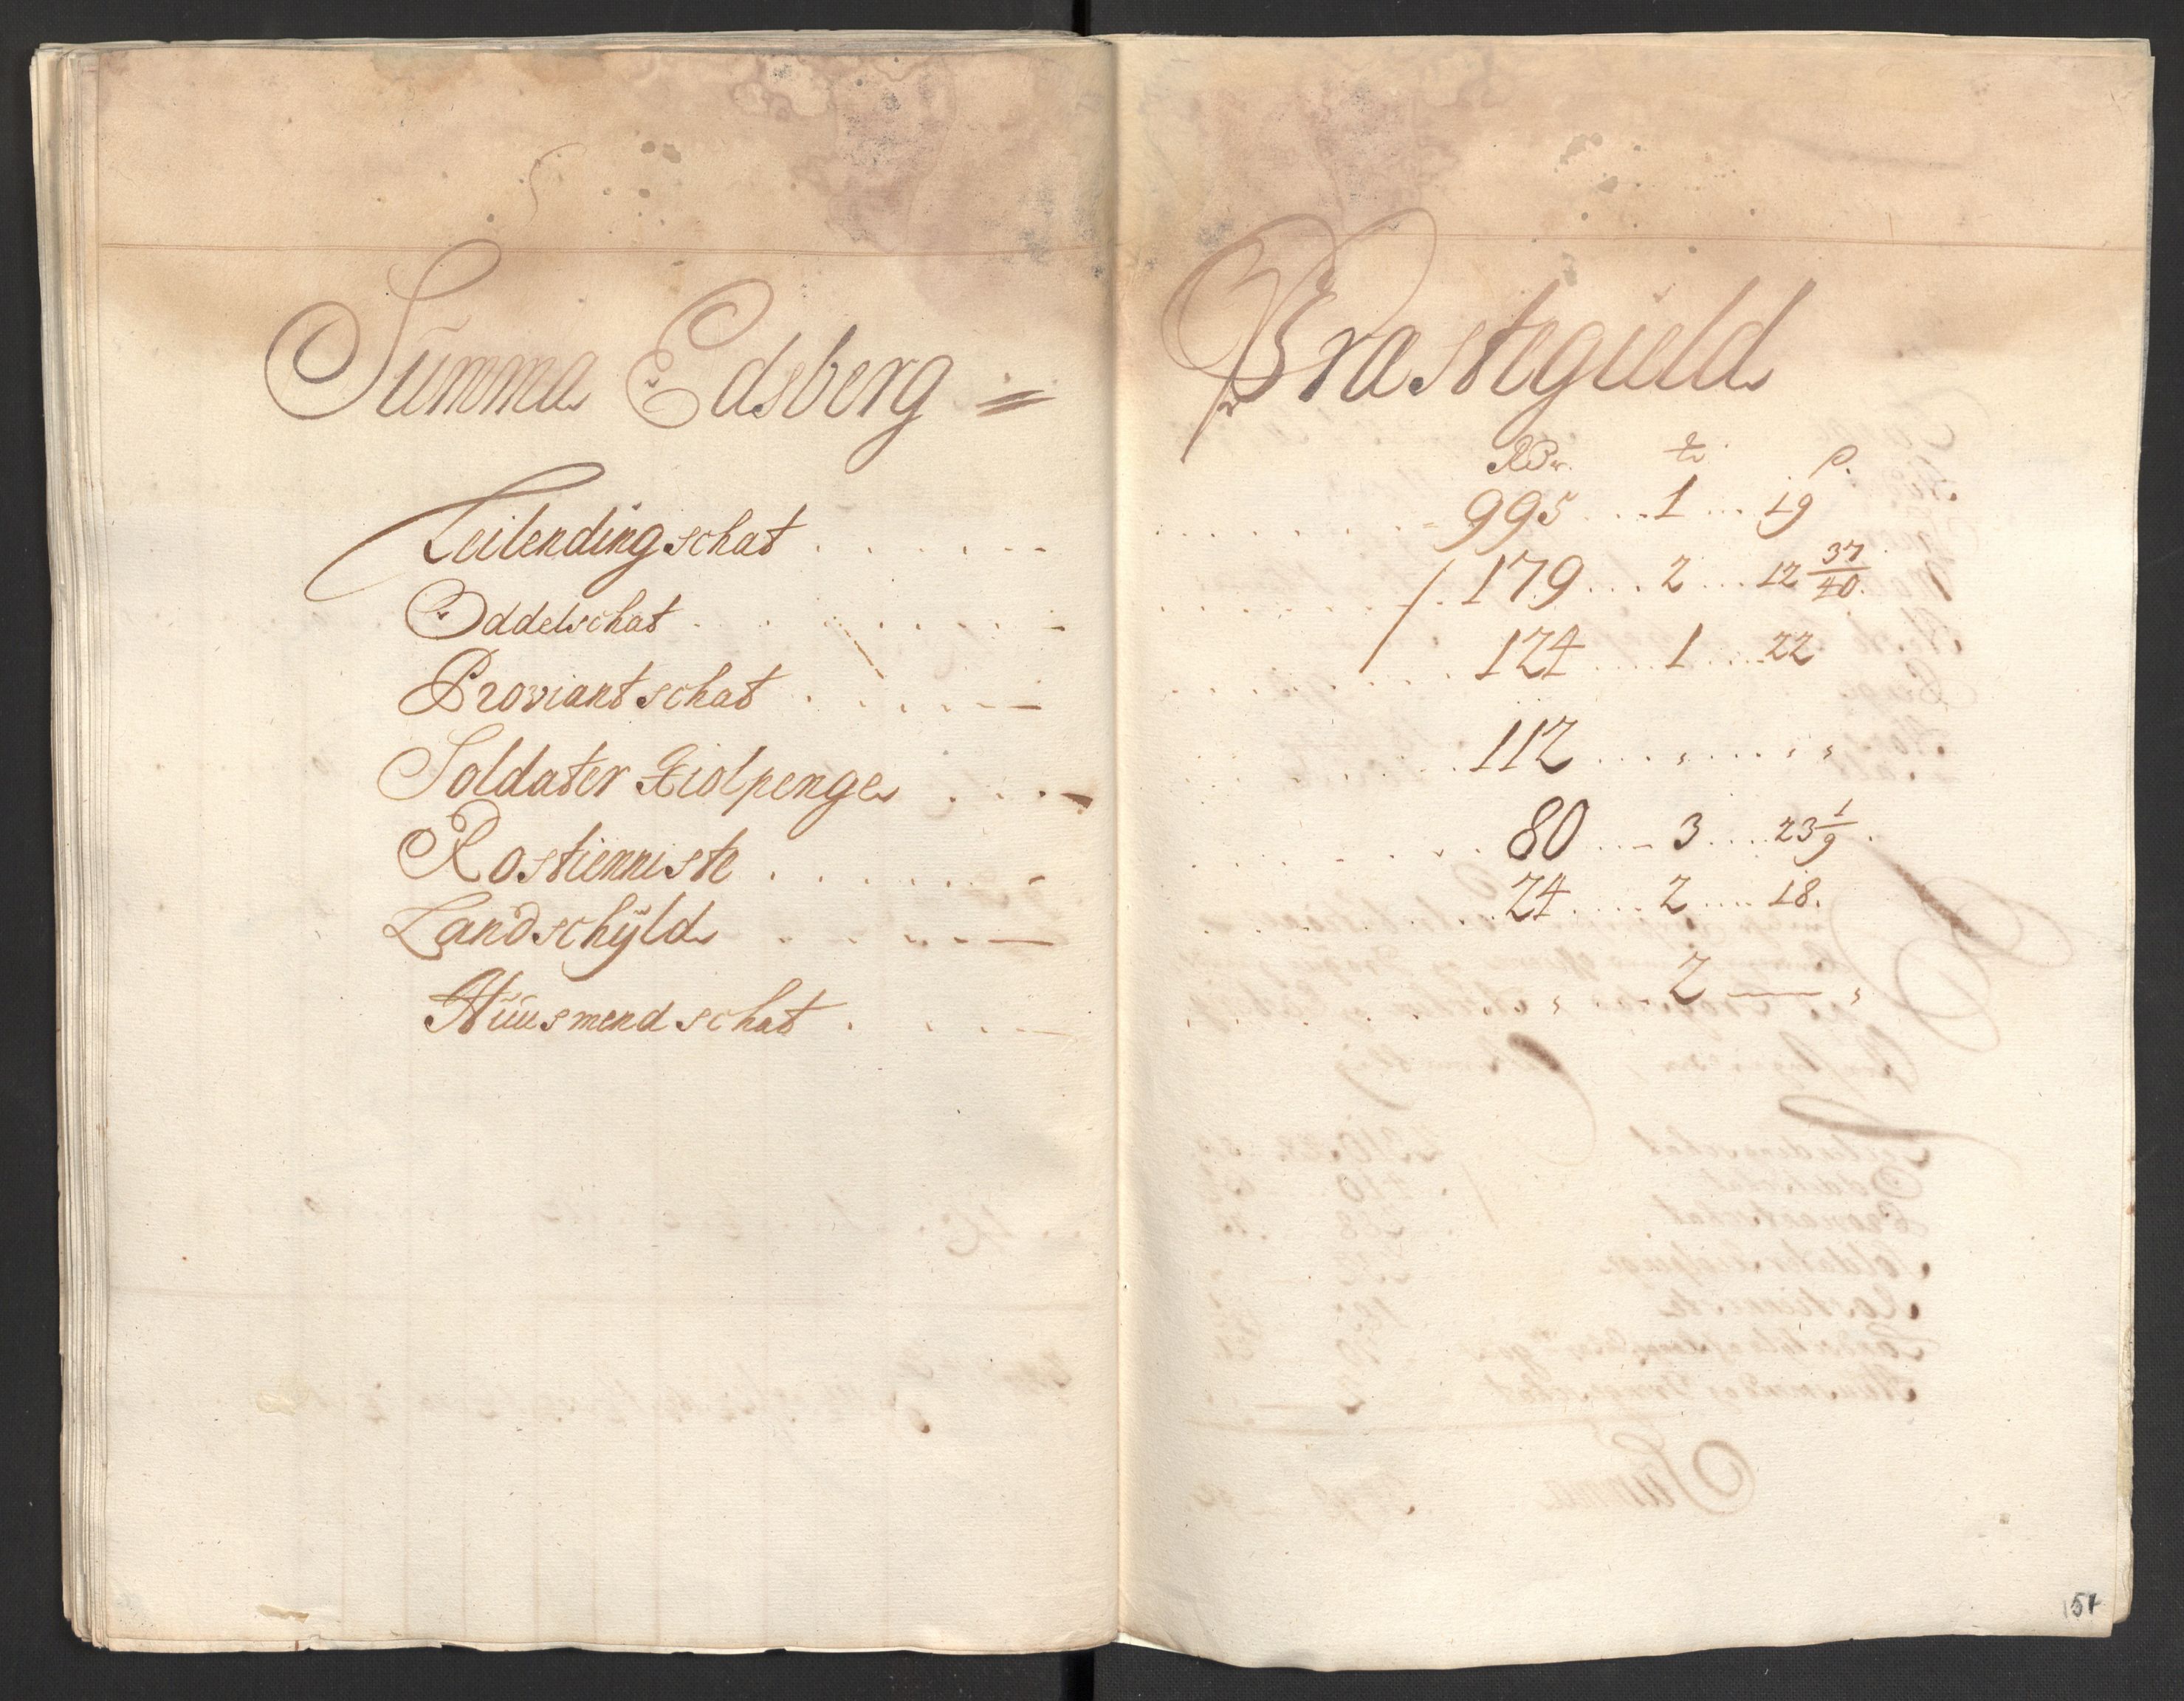 Summa Edsberg = Præstegield
Rdr. ß
Leilendingschat . . . . . . 995 . . 1 . . 19
Oddelschat . . . . . . 179 . . 2 . . 12 37/40.
Proviantschat . . . . . . 124 . . 1 . . 22
Soldater Kiolpenge . . . . 112 . . „ . . „
Rostienniste . . . . . . 80 . . 3 . . 23 1/9.
Landschÿld . . . . . . 24 . . 2 . . 18.
Huusmendschat . . . . „ . . 2 — „
51